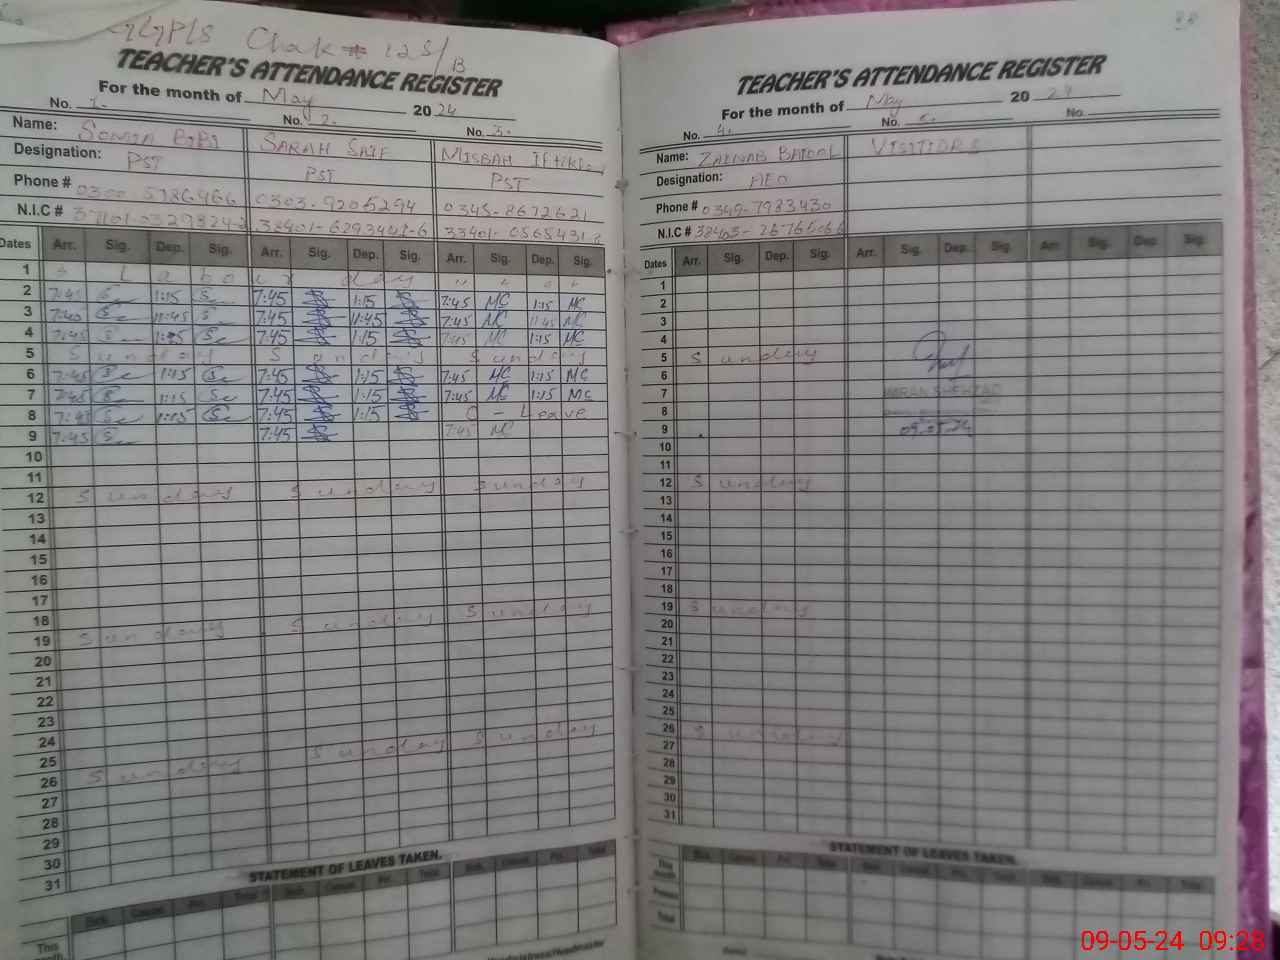 GGPLS Chak # 125/B
TEACHER'S ATTENDANCE REGISTER
For the month of May 2024
No. 1. No. 2. No. 3.
Name: SONIA BIBI SARAH SAIF MISBAH Iftikhar
Designation: PST PST PST
Phone # 0303-9205294 0345-8672621
N.I.C #
Dates Arr. Sig. Dep. Sig. Arr. Sig. Dep. Sig. Arr. Sig. Dep. Sig.
1 Labour day
2 7:45 1:15 7:45 1:15 7:45 MC 1:15 MC
3 7:45 11:45 7:45 11:45 7:45 MC 11:45 MC
4 7:45 1:15 7:45 1:15 7:45 MC 1:15 MC
5 Sunday Sunday Sunday
6 7:45 1:15 7:45 1:15 7:45 MC 1:15 MC
7 7:45 1:15 7:45 1:15 7:45 MC 1:15 MC
8 7:45 1:15 7:45 1:15 C - Leave
9 7:45 7:45 7:45 MC
10
11
12 Sunday Sunday Sunday
13
14
15
16
17
18
19 Sunday Sunday Sunday
20
21
22
23
24
25
26 Sunday Sunday Sunday
27
28
29
30
31
STATEMENT OF LEAVES TAKEN.
Sick Casual Pri. Total Sick Casual Pri. Total Sick Casual Pri. Total
This month
TEACHER'S ATTENDANCE REGISTER
For the month of May 2024
No. 4. No. 5. No.
Name: ZAINAB BATOOL VISITIORS
Designation: AEO
Phone # 0349-7983430
N.I.C #
Dates Arr. Sig. Dep. Sig. Arr. Sig. Dep. Sig. Arr. Sig. Dep. Sig.
1
2
3
4
5 Sunday
6
7 IMRAN SHEHZAD
8
9 09-05-24
10
11
12 Sunday
13
14
15
16
17
18
19 Sunday
20
21
22
23
24
25
26 Sunday
27
28
29
30
31
STATEMENT OF LEAVES TAKEN.
Sick Casual Pri. Total Sick Casual Pri. Total Sick Casual Pri. Total
This month
Previous
Total
09-05-24 09:28